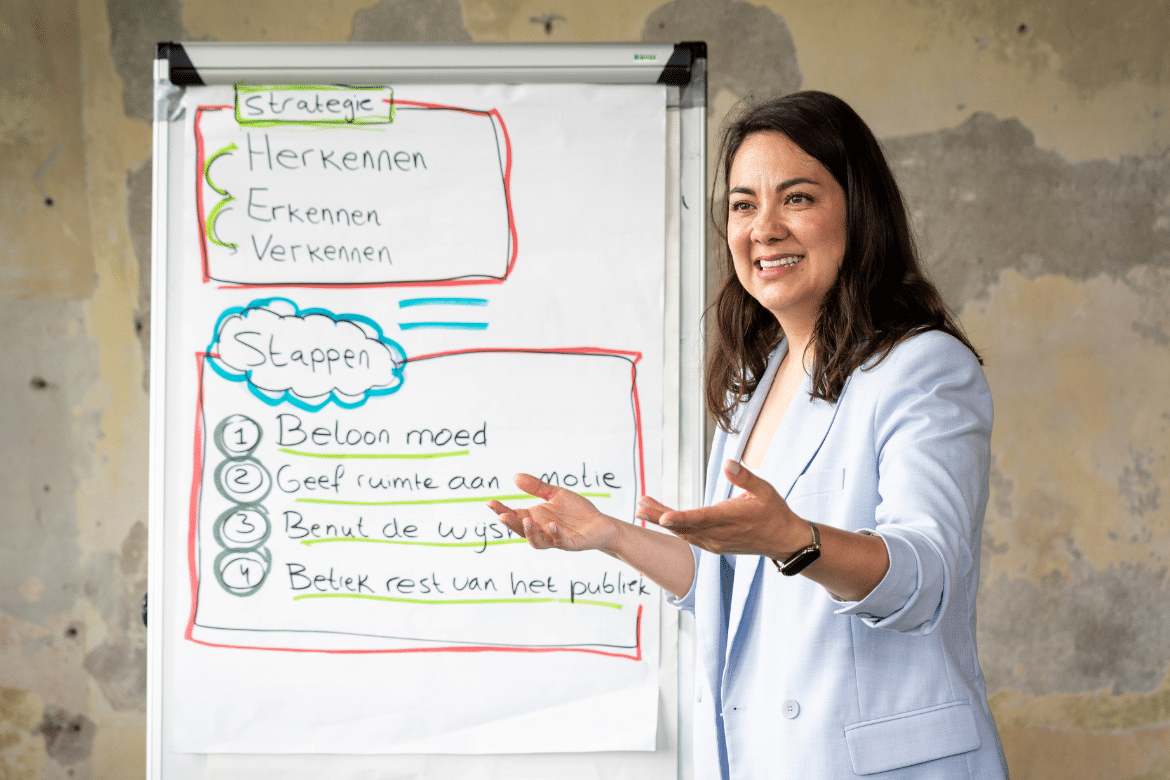 Strategie
Herkennen
Erkennen
Verkennen
Stappen
1 Beloon moed
2 Geef ruimte aan
3 Benut de
4 Betrek rest van het publiek